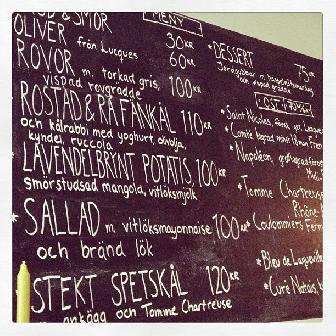 MENY
& SMÖR 30KR
OLIVER från Lucques 60KR
ROVOR m. torkad gris, 100KR
vispad rovgrädde
ROSTAD & RÅ FÄNKÅL 110KR
och kålrabbi med yoghurt, olivolja,
kyndel, ruccola
LAVENDELBRYNT POTATIS, 100KR
Smörstudsad mangold, vitlöksmjölk
*SALLAD m vitlöksmayonnaise 100KR
och bränd lök
STEKT SPETSKÅL 120KR
ankägg och Tomme Chartreuse
*DESSERT 75KR
*Saint Nicolas,
*Comté
*Napoleon,
*Tomme Chartreuse
Rhône-
*Coulommiers Ferm
*Bleu de Laqueuille
*Curé Nantais,